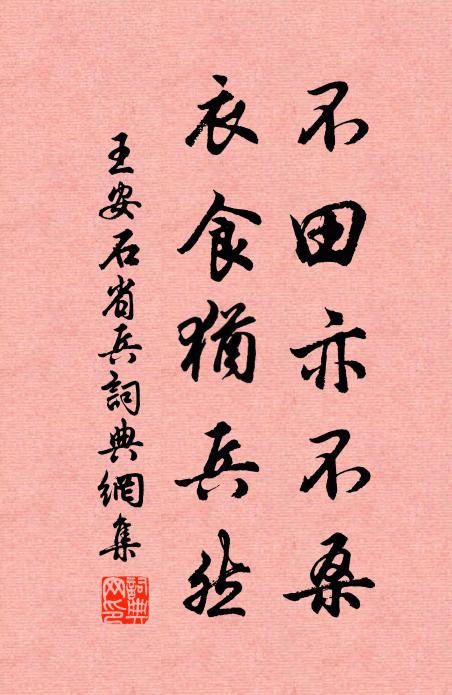 不田亦不桑
衣食猶兵然
王安石省兵詞典網集
詞典網印